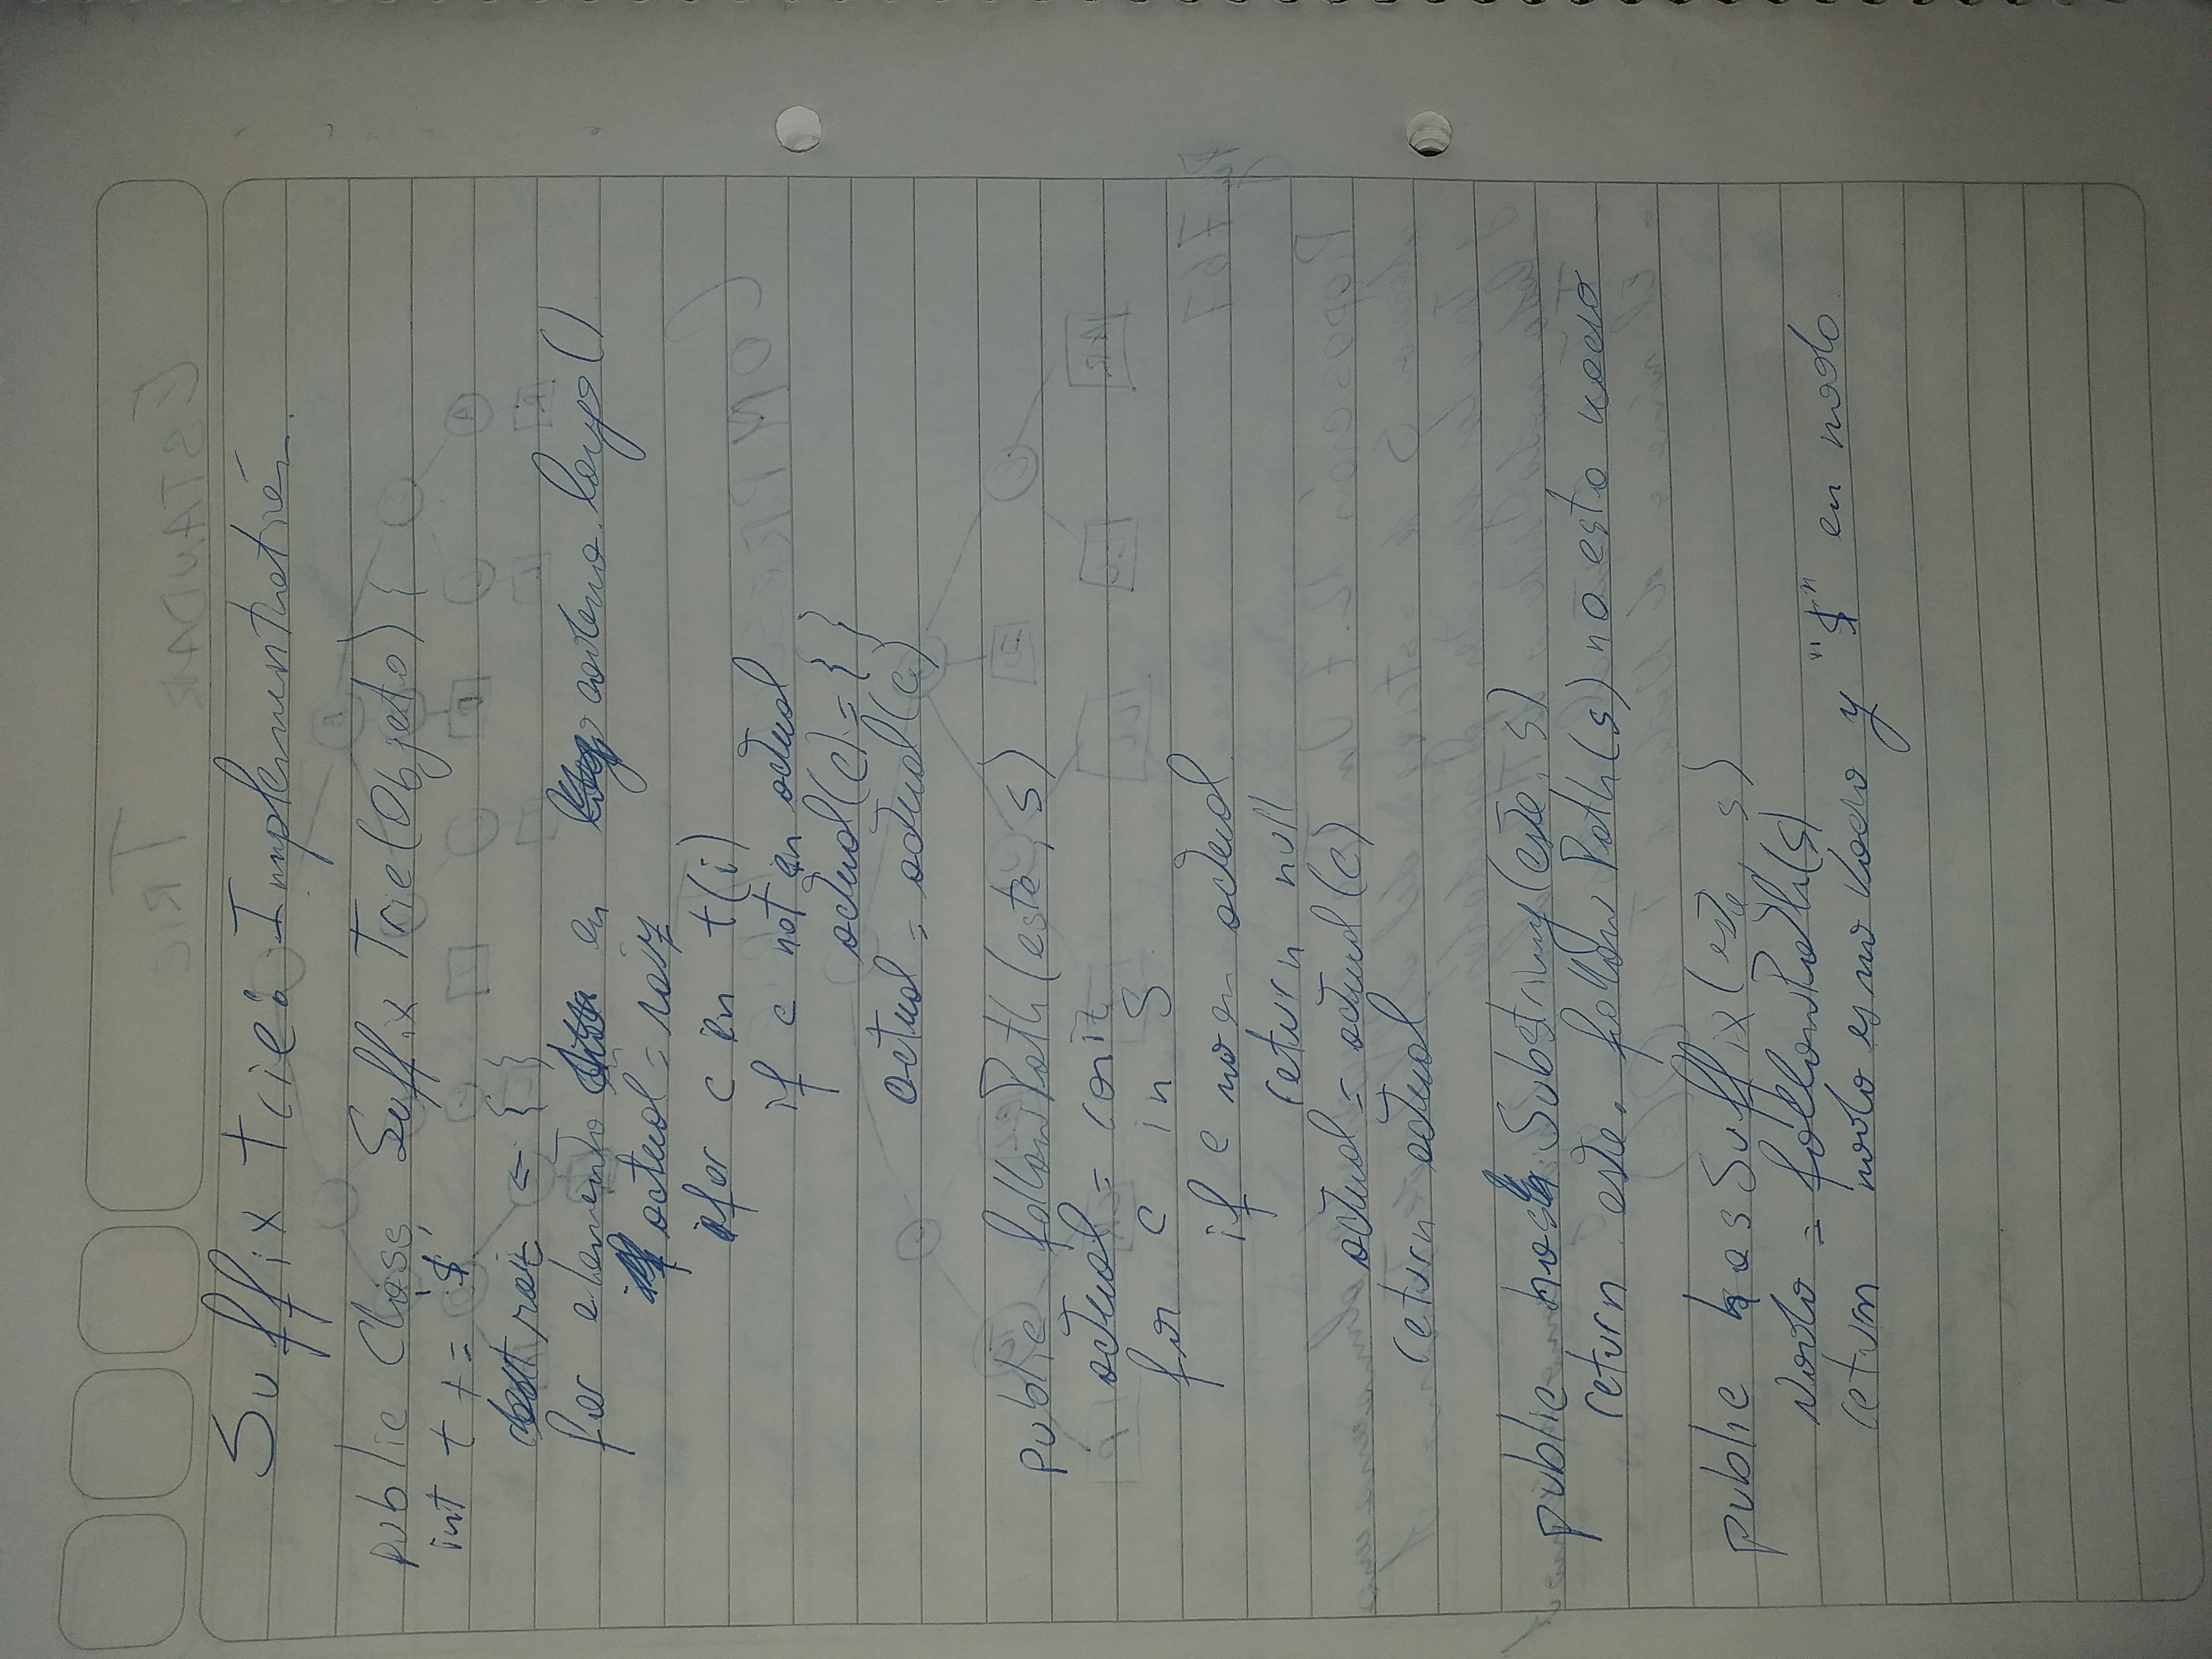 Suffix Trie: Implementratión.
public Class Suffix Trie(Objeto) {
int t += '$'
raiz = { }
for elemento en cadena.largo()
actual = raiz
for c en t(i)
if c not in actual
actual(c) = { }
actual = actual(c)
public followPath(este, s)
actual = raiz
for c in S
if c no en actual
return null
actual = actual(c)
return actual
public hasSubstring(este, s)
return este. followPath(s) no esta vacio
public hasSuffix(este, s)
Nodo = followPath(s)
return nodo es no Vacio y "$" en nodo